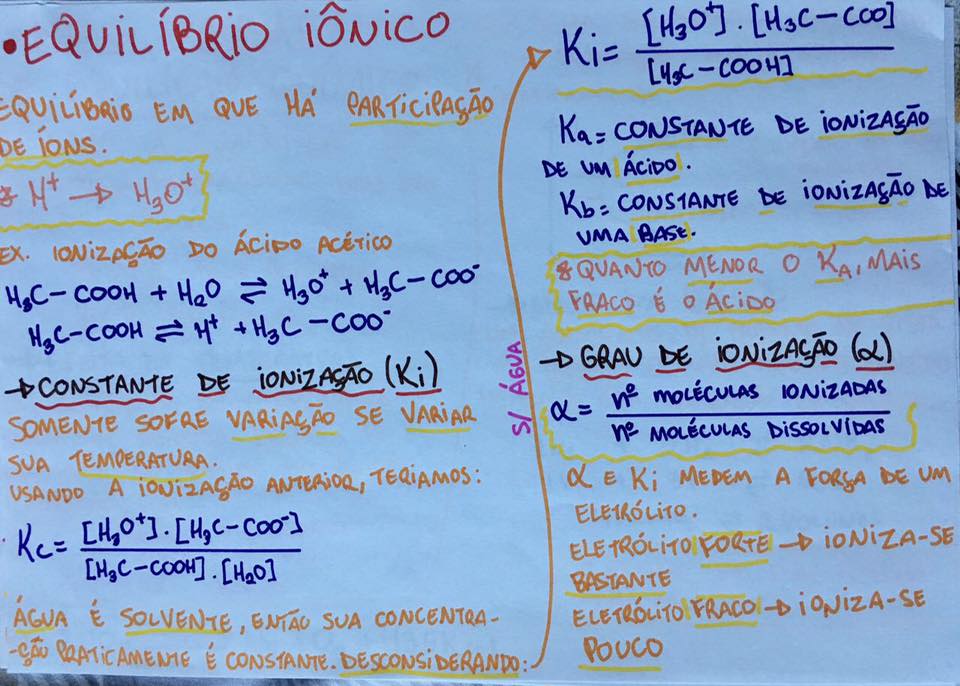 •EQUILÍBRIO IÔNICO
EQUILÍBRIO EM QUE HÁ PARTICIPAÇÃO
DE ÍONS.
* H⁺ → H₃O⁺
EX. IONIZAÇÃO DO ÁCIDO ACÉTICO
H₃C-COOH + H₂O ⇌ H₃O⁺ + H₃C-COO⁻
H₃C-COOH ⇌ H⁺ + H₃C-COO⁻
→ CONSTANTE DE IONIZAÇÃO (Ki)
SOMENTE SOFRE VARIAÇÃO SE VARIAR
SUA TEMPERATURA.
USANDO A IONIZAÇÃO ANTERIOR, TERIAMOS:
Kc= [H₃O⁺].[H₃C-COO⁻]
[H₃C-COOH].[H₂O]
ÁGUA É SOLVENTE, ENTÃO SUA CONCENTRA-
-ÇÃO PRATICAMENTE É CONSTANTE. DESCONSIDERANDO:
S/ ÁGUA
Ki= [H₃O⁺].[H₃C-COO]
[H₃C-COOH]
Ka= CONSTANTE DE IONIZAÇÃO
DE UM ÁCIDO.
Kb= CONSTANTE DE IONIZAÇÃO DE
UMA BASE.
* QUANTO MENOR O KA, MAIS
FRACO É O ÁCIDO
→ GRAU DE IONIZAÇÃO (α)
α= nº MOLÉCULAS IONIZADAS
nº MOLÉCULAS DISSOLVIDAS
α E Ki MEDEM A FORÇA DE UM
ELETRÓLITO.
ELETRÓLITO FORTE → IONIZA-SE
BASTANTE
ELETRÓLITO FRACO → IONIZA-SE
POUCO